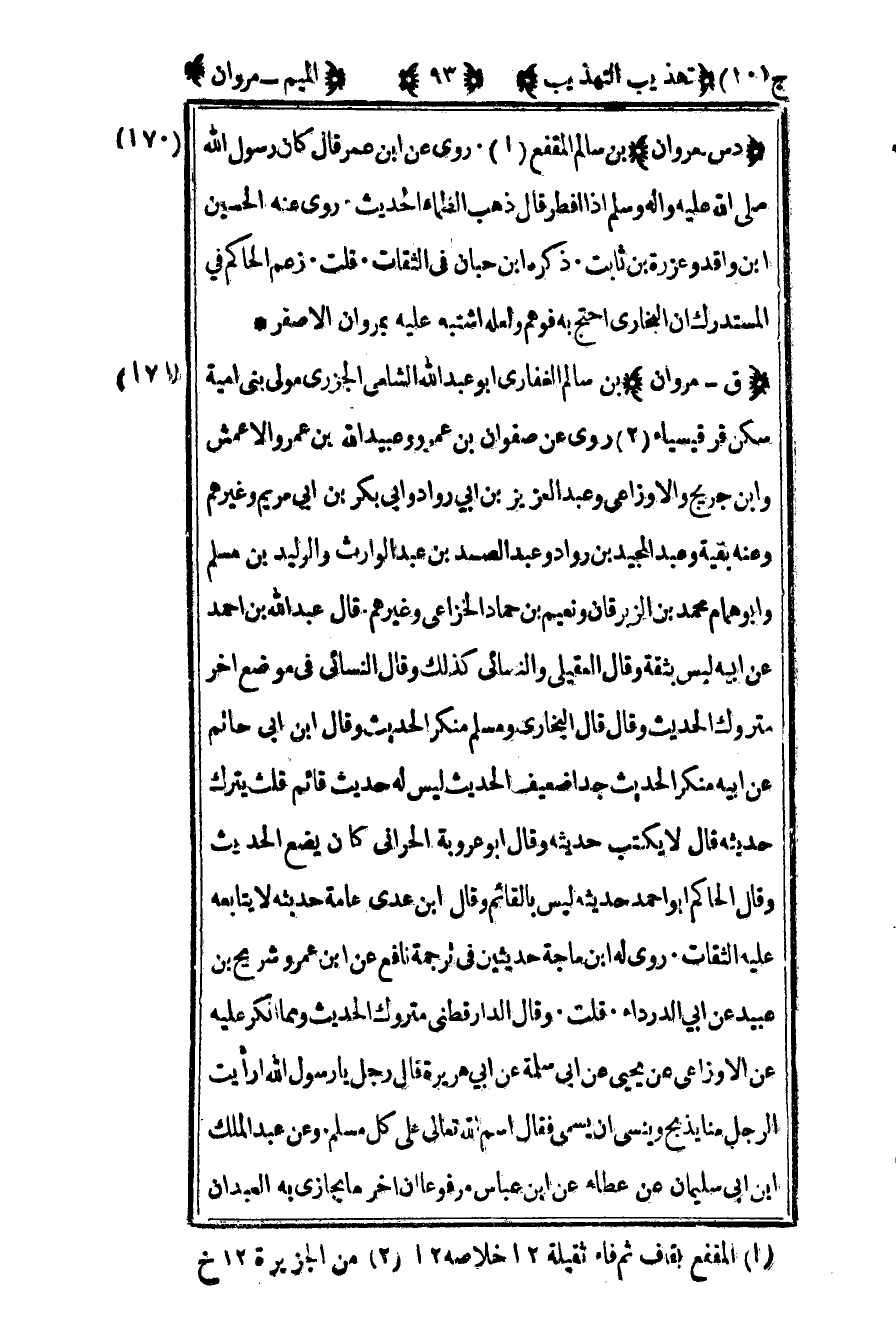 ج(١٠) ﴿تهذيب التهذيب﴾ ﴿٩٣﴾ ﴿الميم ـ مروان﴾
﴿دس ـ مروان﴾ بن سالم المقفع (١) ٠ روى عن ابن عمر قال كان رسول الله (١٧٠)
صلى الله عليه واله وسلم اذا افطر قال ذهب الظماء الحديث ٠ روى عنه الحسين
ابن واقد وعزرة بن ثابت ٠ ذكره ابن حبان فى الثقات ٠ قلت ٠ زعم الحاكم في
المستدرك ان البخارى احتج به فوهم ولعله اشتبه عليه بمروان الاصفر *
﴿ق ـ مروان﴾ بن سالم الغفارى ابو عبد الله الشامى الجزرى مولى بنى امية (١٧١)
سكن قرقيسياء (٢) روى عن صفوان بن عمرو وعبيد الله بن عمر والاعمش
وابن جريج والاوزاعى وعبد العزيز بن ابي رواد وابي بكر بن ابي مريم وغيرهم
وعنه بقية وعبد المجيد بن رواد وعبد الصمد بن عبد الوارث والوليد بن مسلم
وابو همام محمد بن الزبرقان ونعيم بن حماد الخزاعى وغيرهم ٠ قال عبد الله بن احمد
عن ابيه ليس بثقة وقال العقيلى والنسائى كذلك وقال النسائى فى موضع اخر
متروك الحديث وقال قال البخارى ومسلم منكر الحديث وقال ابن ابى حاتم
عن ابيه منكر الحديث جدا ضعيف الحديث ليس له حديث قائم قلت يترك
حديثه قال لا يكتب حديثه وقال ابو عروبة الحرانى كان يضع الحديث
وقال الحاكم ابو احمد حديثه ليس بالقائم وقال ابن عدى عامة حديثه لا يتابعه
عليه الثقات ٠ روى له ابن ماجة حديثين فى ترجمة نافع عن ابن عمر وشريح بن
عبيد عن ابي الدرداء ٠ قلت ٠ وقال الدارقطنى متروك الحديث ومما انكر عليه
عن الاوزاعى عن يحيى عن ابى سلمة عن ابي هريرة قال رجل يا رسول الله ارأيت
الرجل منا يذبح وينسى ان يسمى فقال اسم الله تعالى على كل مسلم ٠ وعن عبد الملك
ابن ابى سليمان عن عطاء عن ابن عباس مرفوعا ان اخر ما يجازى به العبد ان
(١) المقفع بقاف ثم فاء ثقيلة ١٢ خلاصه ١٢ (٢) من الجزيرة ١٢ خ